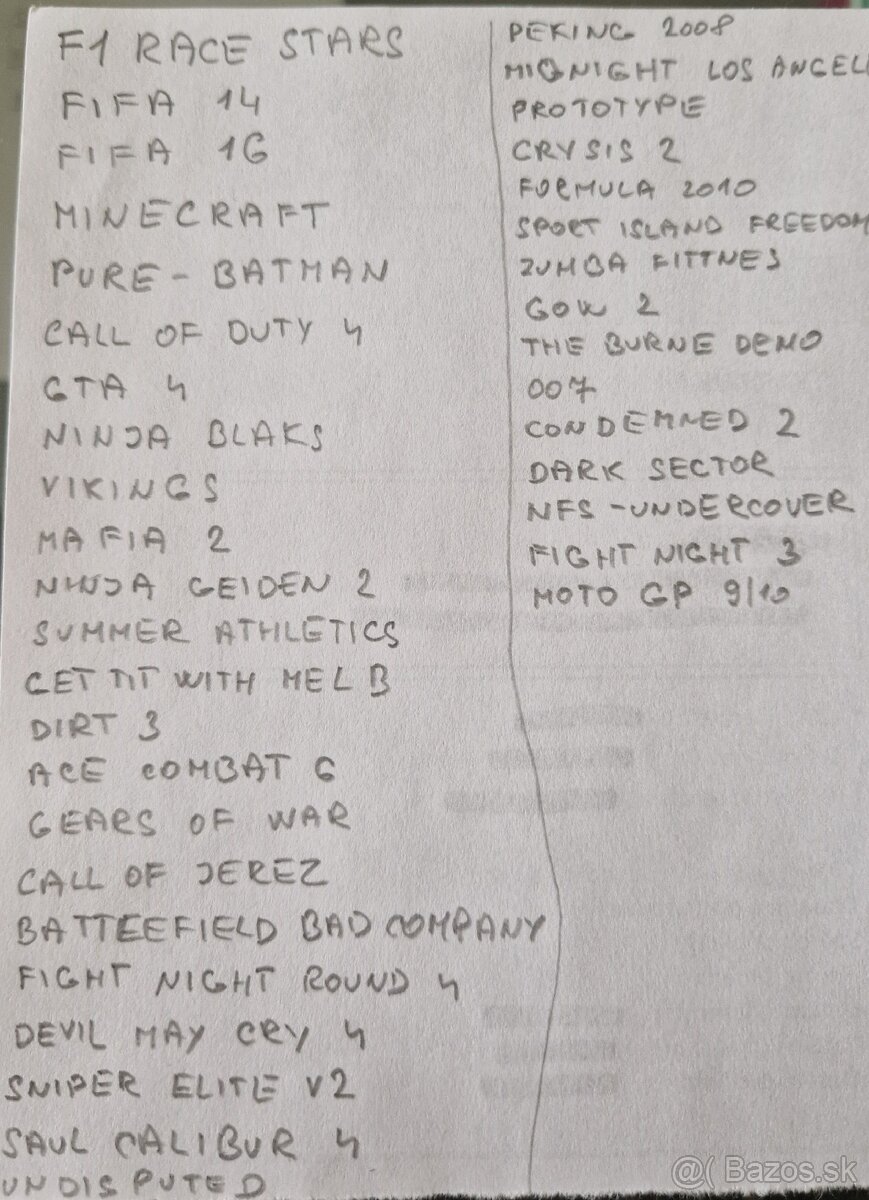 F1 RACE STARS
FIFA 14
FIFA 16
MINECRAFT
PURE - BATMAN
CALL OF DUTY 4
GTA 4
NINJA BLAKS
VIKINGS
MAFIA 2
NINJA GEIDEN 2
SUMMER ATHLETICS
GET WITH MEL B
DIRT 3
ACE COMBAT 6
GEARS OF WAR
CALL OF JEREZ
BATTEEFIELD BAD COMPANY
FIGHT NIGHT ROUND 4
DEVIL MAY CRY 4
SNIPER ELITE V2
SAUL CALIBUR 4
UNDISPUTED
PEKING 2008
MIDNIGHT LOS ANGEL
PROTOTYPE
CRYSIS 2
FORMULA 2010
SPORT ISLAND FREEDOM
ZUMBA FITTNES
GOW 2
THE BURNE DEMO
007
CONDEMNED 2
DARK SECTOR
NFS - UNDERCOVER
FIGHT NIGHT 3
MOTO GP 9/10
@( Bazos.sk